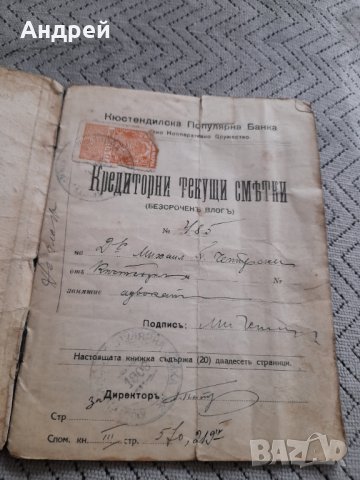 Андрей
Кюстендилска Популярна Банка
Кооперативно Сдружество
Кредиторни текущи смѣтки
(БЕЗСРОЧЕНЪ ВЛОГЪ)
№ 3/85
на Д-ръ Михаил
отъ №
занятие адвокат
Подпис:
Настоящата книжка съдържа (20) двадесеть страници.
за Директоръ:
Стр
Спом. кн. III стр. 570, 219
bazar